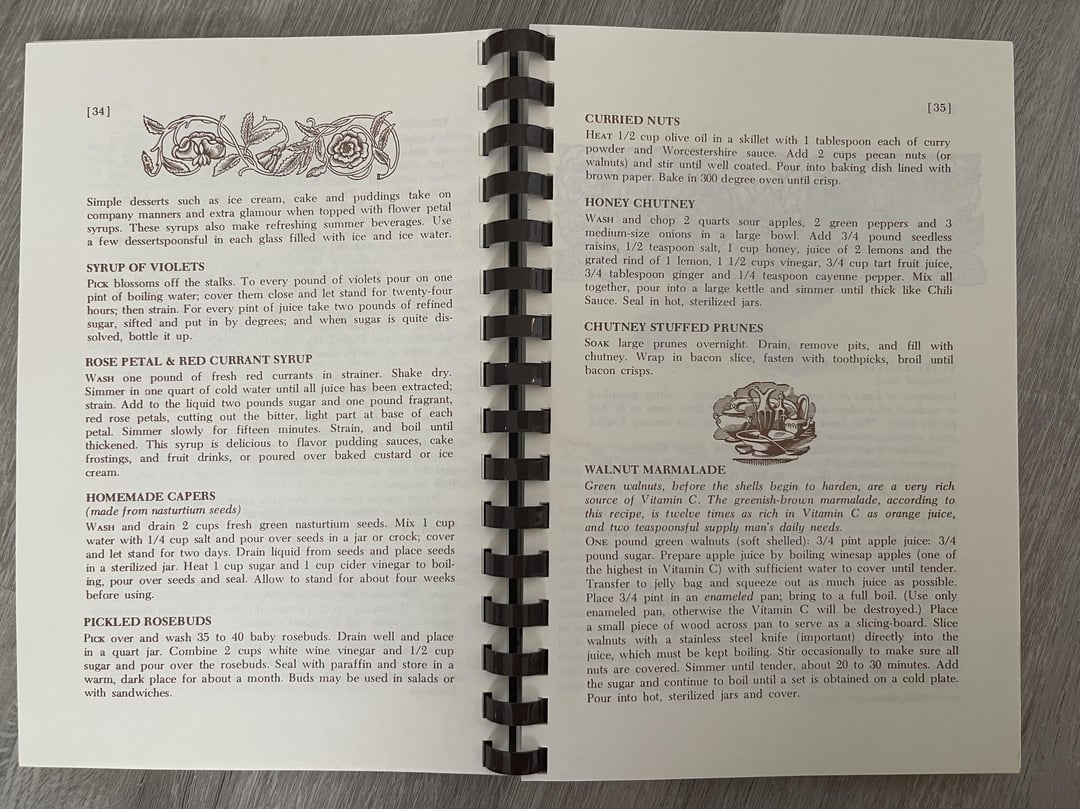 [34]
Simple desserts such as ice cream, cake and puddings take on
company manners and extra glamour when topped with flower petal
syrups. These syrups also make refreshing summer beverages. Use
a few dessertspoonsful in each glass filled with ice and ice water.
SYRUP OF VIOLETS
PICK blossoms off the stalks. To every pound of violets pour on one
pint of boiling water; cover them close and let stand for twenty-four
hours; then strain. For every pint of juice take two pounds of refined
sugar, sifted and put in by degrees; and when sugar is quite dis-
solved, bottle it up.
ROSE PETAL & RED CURRANT SYRUP
WASH one pound of fresh red currants in strainer. Shake dry.
Simmer in one quart of cold water until all juice has been extracted;
strain. Add to the liquid two pounds sugar and one pound fragrant,
red rose petals, cutting out the bitter, light part at base of each
petal. Simmer slowly for fifteen minutes. Strain, and boil until
thickened. This syrup is delicious to flavor pudding sauces, cake
frostings, and fruit drinks, or poured over baked custard or ice
cream.
HOMEMADE CAPERS
(made from nasturtium seeds)
WASH and drain 2 cups fresh green nasturtium seeds. Mix 1 cup
water with 1/4 cup salt and pour over seeds in a jar or crock; cover
and let stand for two days. Drain liquid from seeds and place seeds
in a sterilized jar. Heat 1 cup sugar and 1 cup cider vinegar to boil-
ing, pour over seeds and seal. Allow to stand for about four weeks
before using.
PICKLED ROSEBUDS
PICK over and wash 35 to 40 baby rosebuds. Drain well and place
in a quart jar. Combine 2 cups white wine vinegar and 1/2 cup
sugar and pour over the rosebuds. Seal with paraffin and store in a
warm, dark place for about a month. Buds may be used in salads or
with sandwiches.
[35]
CURRIED NUTS
HEAT 1/2 cup olive oil in a skillet with 1 tablespoon each of curry
powder and Worcestershire sauce. Add 2 cups pecan nuts (or
walnuts) and stir until well coated. Pour into baking dish lined with
brown paper. Bake in 300 degree oven until crisp.
HONEY CHUTNEY
WASH and chop 2 quarts sour apples, 2 green peppers and 3
medium-size onions in a large bowl. Add 3/4 pound seedless
raisins, 1/2 teaspoon salt, 1 cup honey, juice of 2 lemons and the
grated rind of 1 lemon, 1 1/2 cups vinegar, 3/4 cup tart fruit juice,
3/4 tablespoon ginger and 1/4 teaspoon cayenne pepper. Mix all
together, pour into a large kettle and simmer until thick like Chili
Sauce. Seal in hot, sterilized jars.
CHUTNEY STUFFED PRUNES
SOAK large prunes overnight. Drain, remove pits, and fill with
chutney. Wrap in bacon slice, fasten with toothpicks, broil until
bacon crisps.
WALNUT MARMALADE
Green walnuts, before the shells begin to harden, are a very rich
source of Vitamin C. The greenish-brown marmalade, according to
this recipe, is twelve times as rich in Vitamin C as orange juice,
and two teaspoonsful supply man's daily needs.
ONE pound green walnuts (soft shelled): 3/4 pint apple juice: 3/4
pound sugar. Prepare apple juice by boiling winesap apples (one of
the highest in Vitamin C) with sufficient water to cover until tender.
Transfer to jelly bag and squeeze out as much juice as possible.
Place 3/4 pint in an enameled pan; bring to a full boil. (Use only
enameled pan, otherwise the Vitamin C will be destroyed.) Place
a small piece of wood across pan to serve as a slicing-board. Slice
walnuts with a stainless steel knife (important) directly into the
juice, which must be kept boiling. Stir occasionally to make sure all
nuts are covered. Simmer until tender, about 20 to 30 minutes. Add
the sugar and continue to boil until a set is obtained on a cold plate.
Pour into hot, sterilized jars and cover.